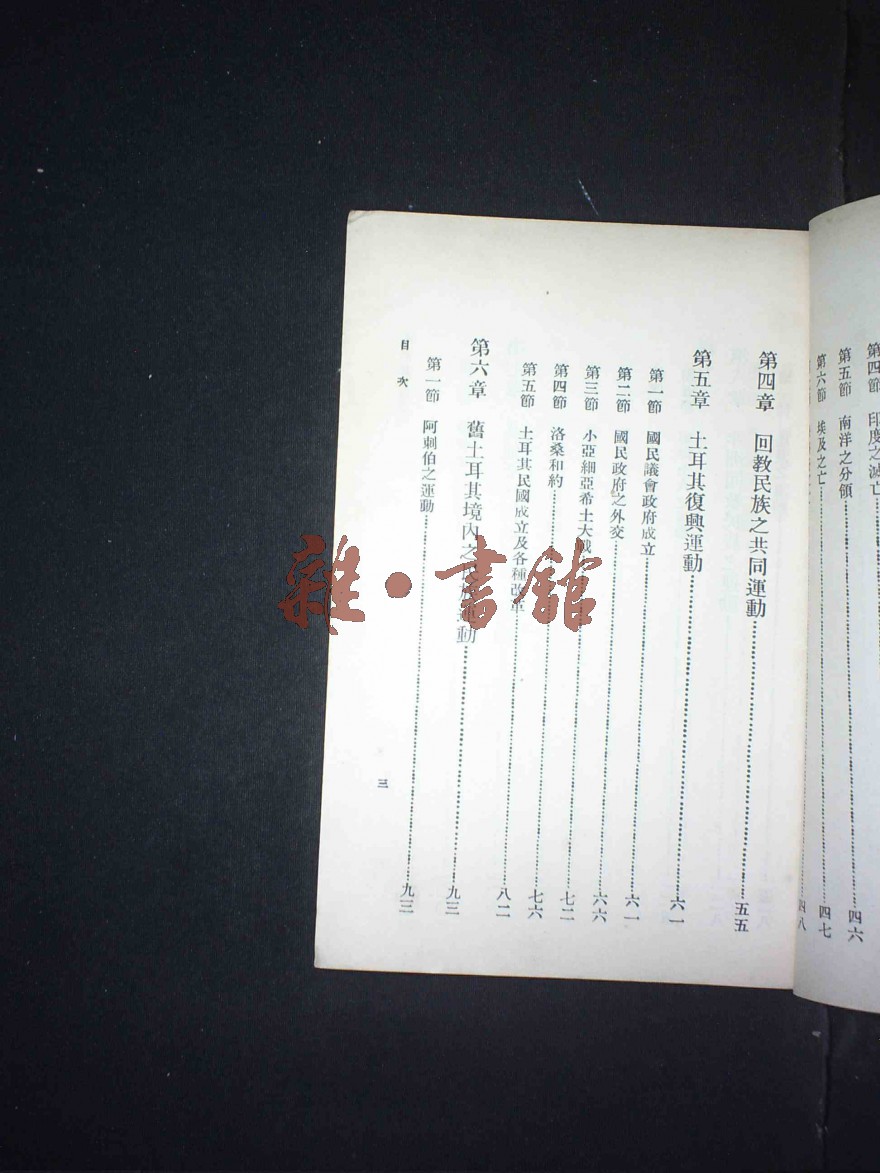 第四節 印度之滅亡
第五節 南洋之分領……四六
第六節 埃及之亡……四七
四八
第四章 回教民族之共同運動……五五
第五章 土耳其復興運動……六一
第一節 國民議會政府成立……六一
第二節 國民政府之外交……六六
第三節 小亞細亞希土大戰……七二
第四節 洛桑和約……七六
第五節 土耳其民國成立及各種改革……八二
第六章 舊土耳其境內之 運動……九三
第一節 阿剌伯之運動……九三
目次
三
雜·書館